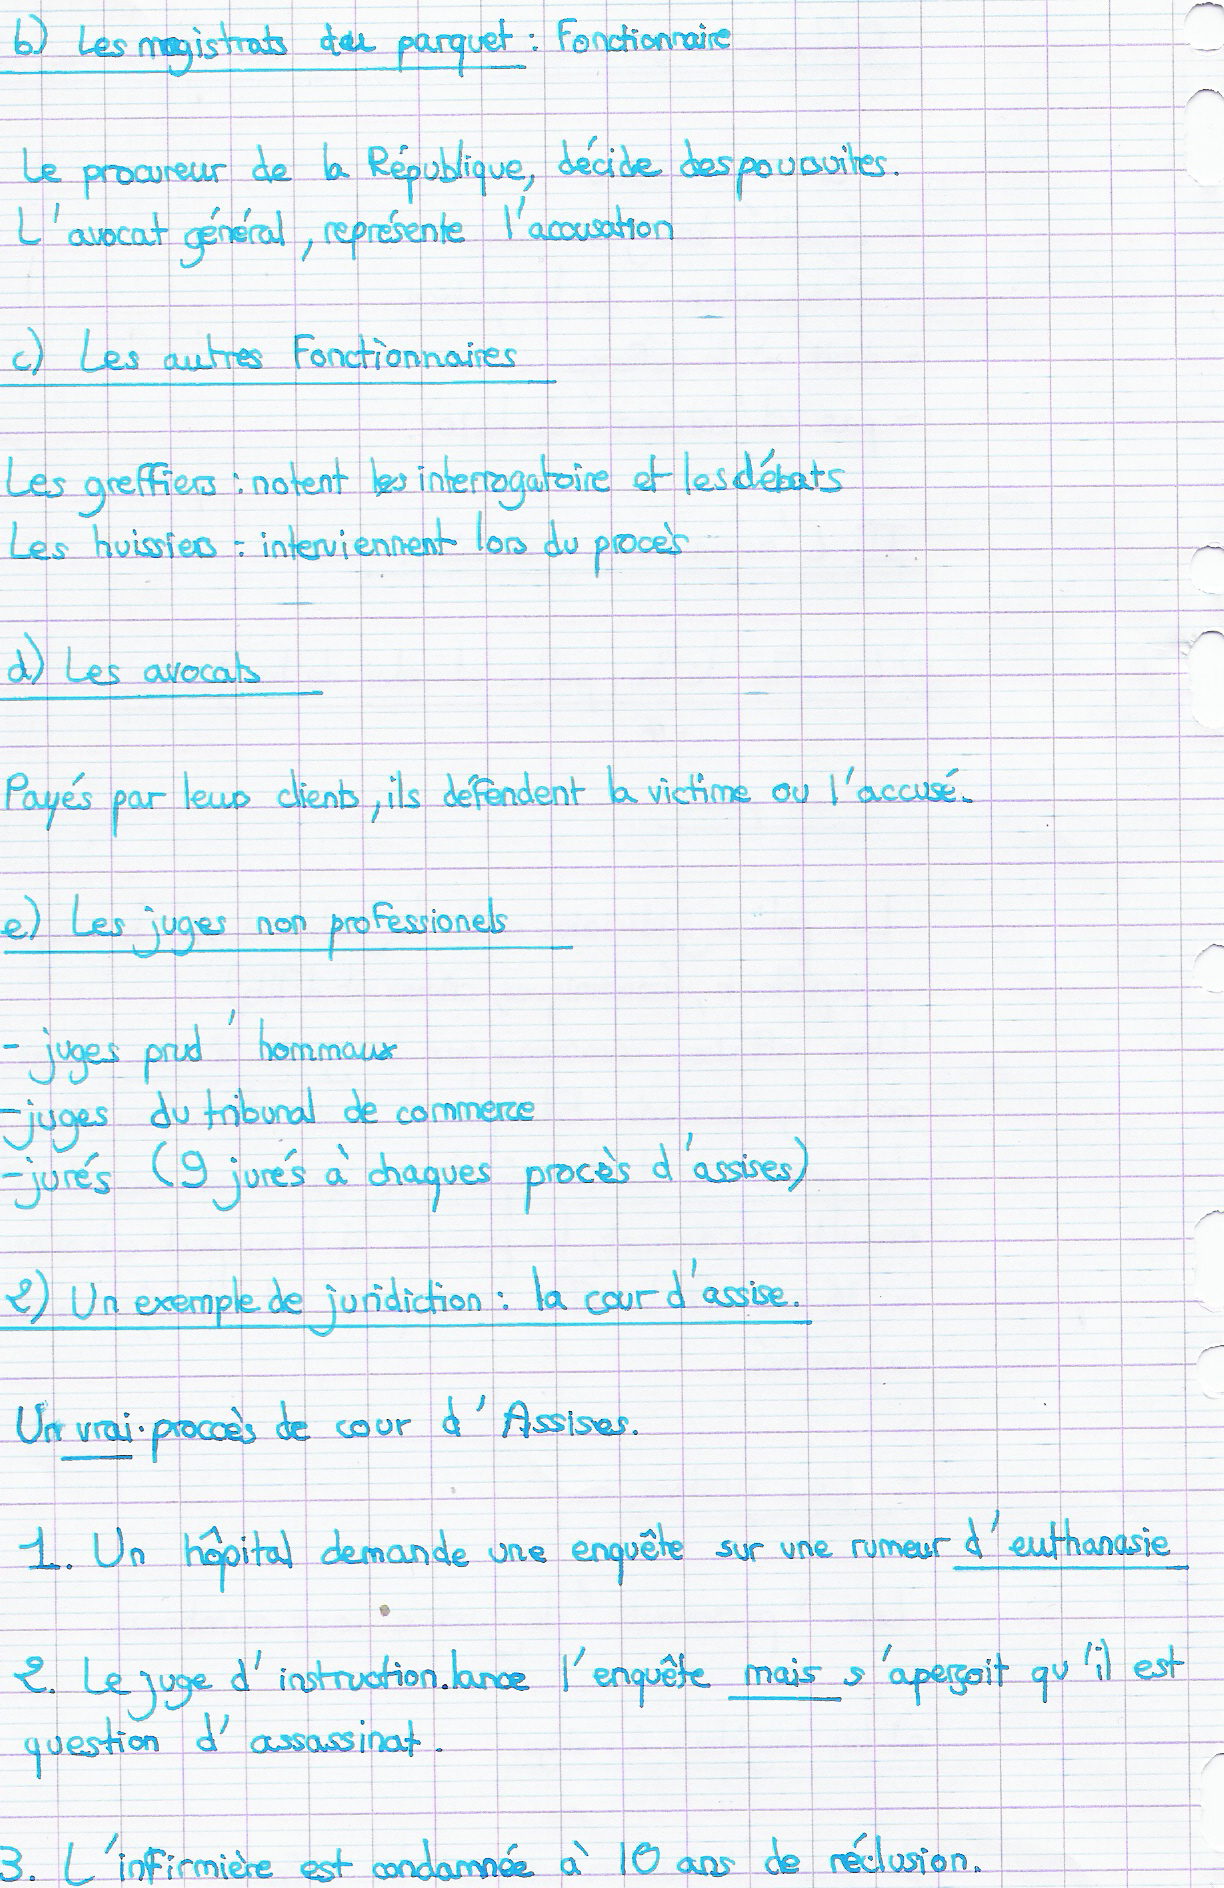 b) Les magistrats du parquet : Fonctionnaire
Le procureur de la République, décide des pousuites.
L'avocat général, représente l'accusation
c) Les autres Fonctionnaires
Les greffiers : notent les interrogatoire et les débats
Les huissiers : interviennent lors du procès
d) Les avocats
Payés par leurs clients, ils défendent la victime ou l'accusé.
e) Les juges non professionels
- juges prud'hommaux
- juges du tribunal de commerce
- jurés (9 jurés à chaques procès d'assises)
2) Un exemple de juridiction : la cour d'assise.
Un vrai procès de cour d'Assises.
1. Un hôpital demande une enquête sur une rumeur d'euthanasie
2. Le juge d'instruction lance l'enquête mais s'aperçoit qu'il est
question d'assassinat.
3. L'infirmière est condamnée à 10 ans de réclusion.